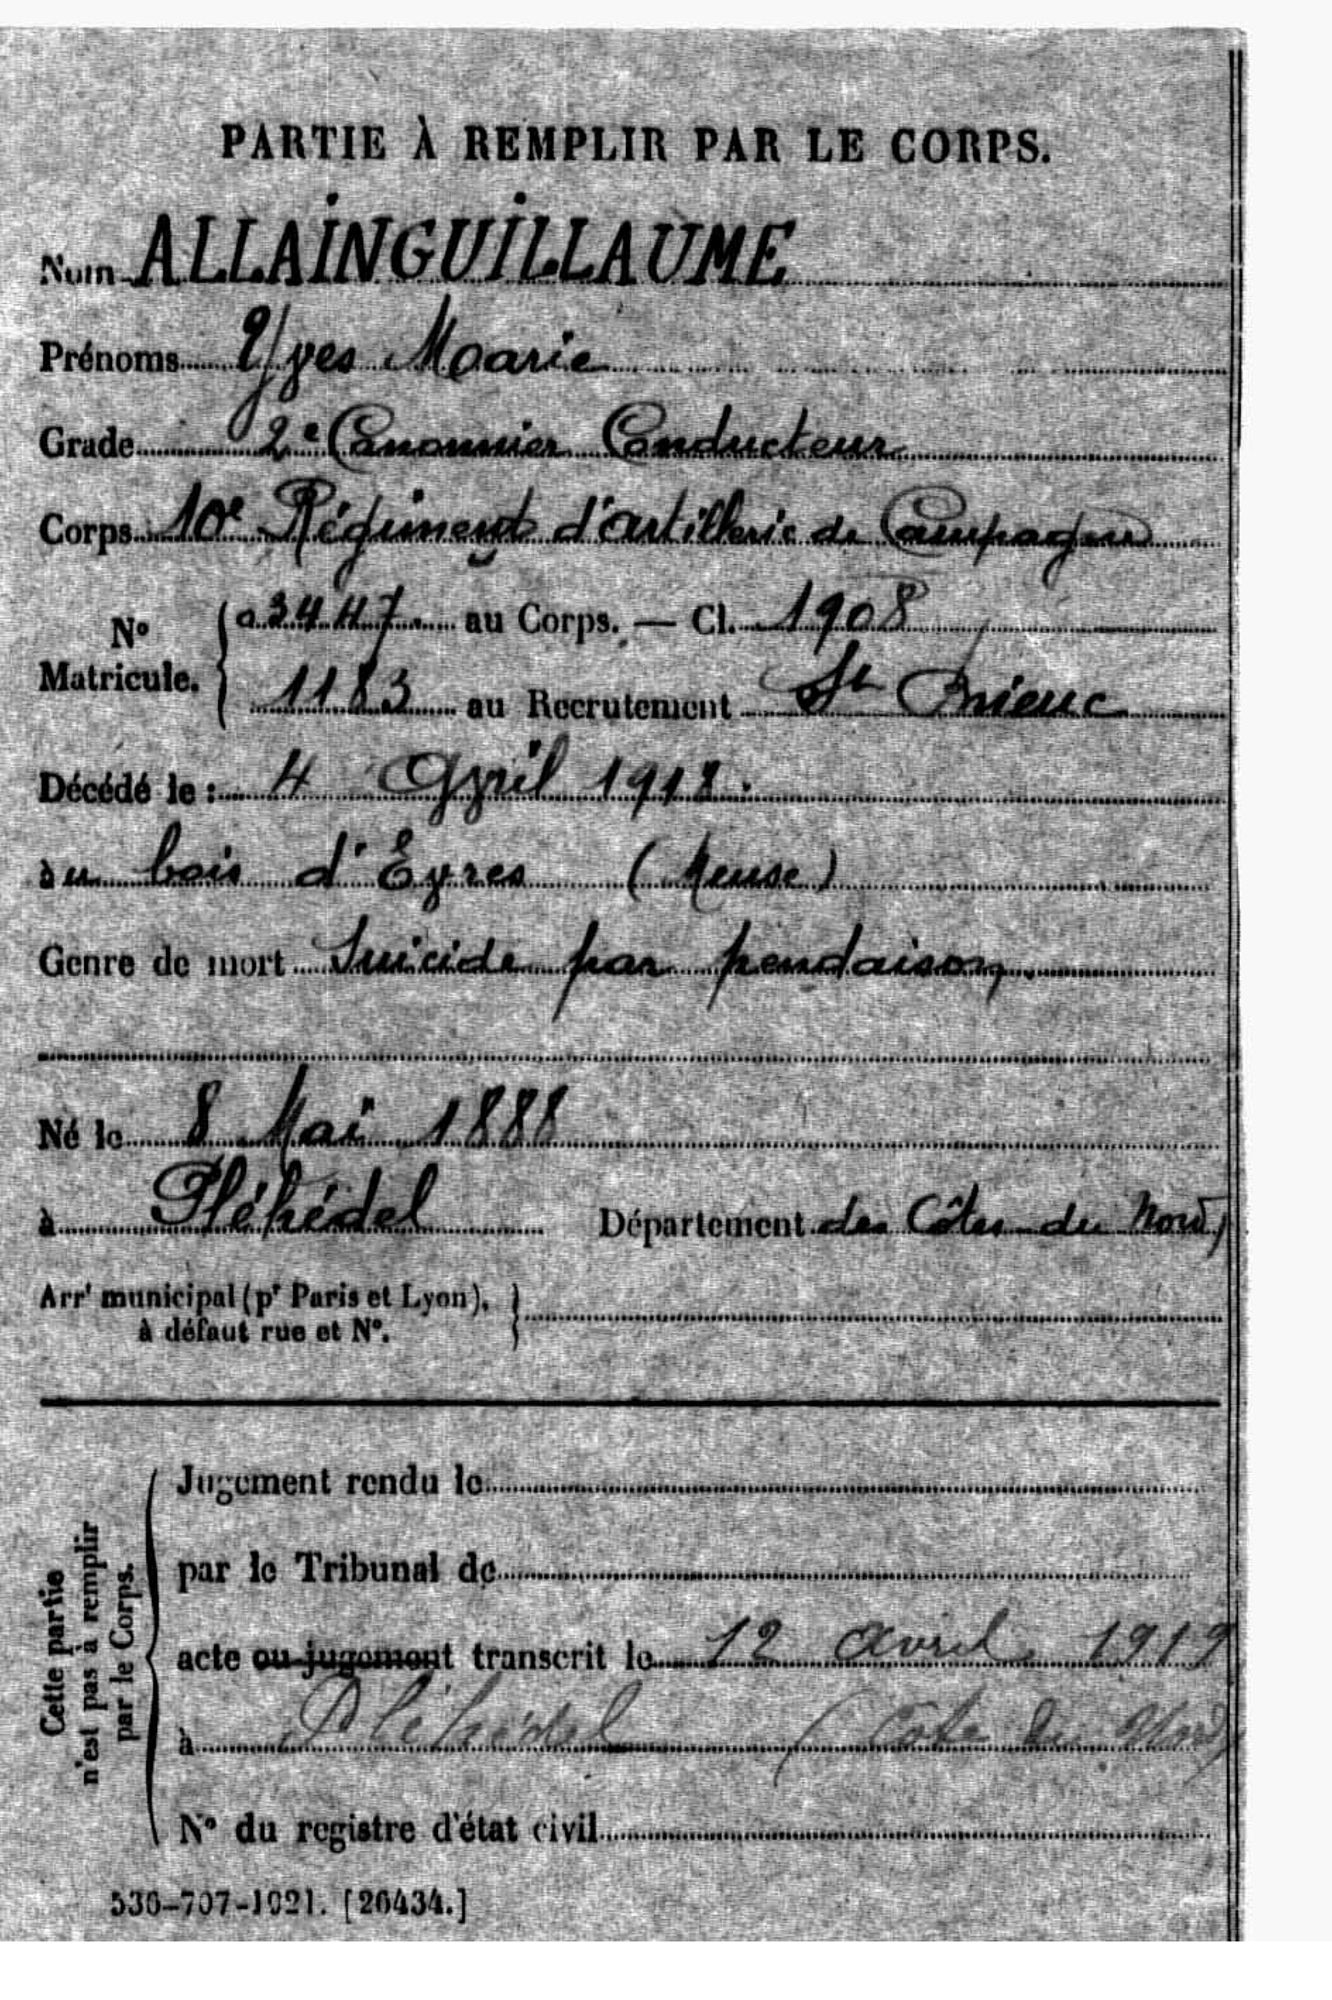 PARTIE À REMPLIR PAR LE CORPS.
Nom ALLAINGUILLAUME
Prénoms Yves Marie
Grade 2e Canonnier Conducteur
Corps 10e Régiment d'artillerie de Campagne
No Matricule. { a 3447. au Corps. — Cl. 1908
1183 au Recrutement St Brieuc
Décédé le : 4 April 1918.
au bois d'Eyres (Meuse)
Genre de mort Suicide par pendaison.
Né le 8 Mai 1888
à Pléhédel Département des Côtes du Nord
Arrt municipal (pr Paris et Lyon), }
à défaut rue et No.
Cette partie
n'est pas à remplir
par le Corps.
Jugement rendu le
par le Tribunal de
acte ou jugement transcrit le 12 avril 1919
à Pléhédel (Cote du Nord)
No du registre d'état civil
530-707-1921. [26434.]